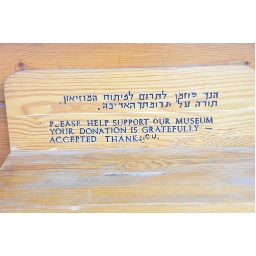 הנך מוזמן לתרום לפיתוח המוזיאון.
תודה על תרומתך האדיבה.
PLEASE HELP SUPPORT OUR MUSEUM
YOUR DONATION IS GRATEFULLY –
ACCEPTED THANK YOU.